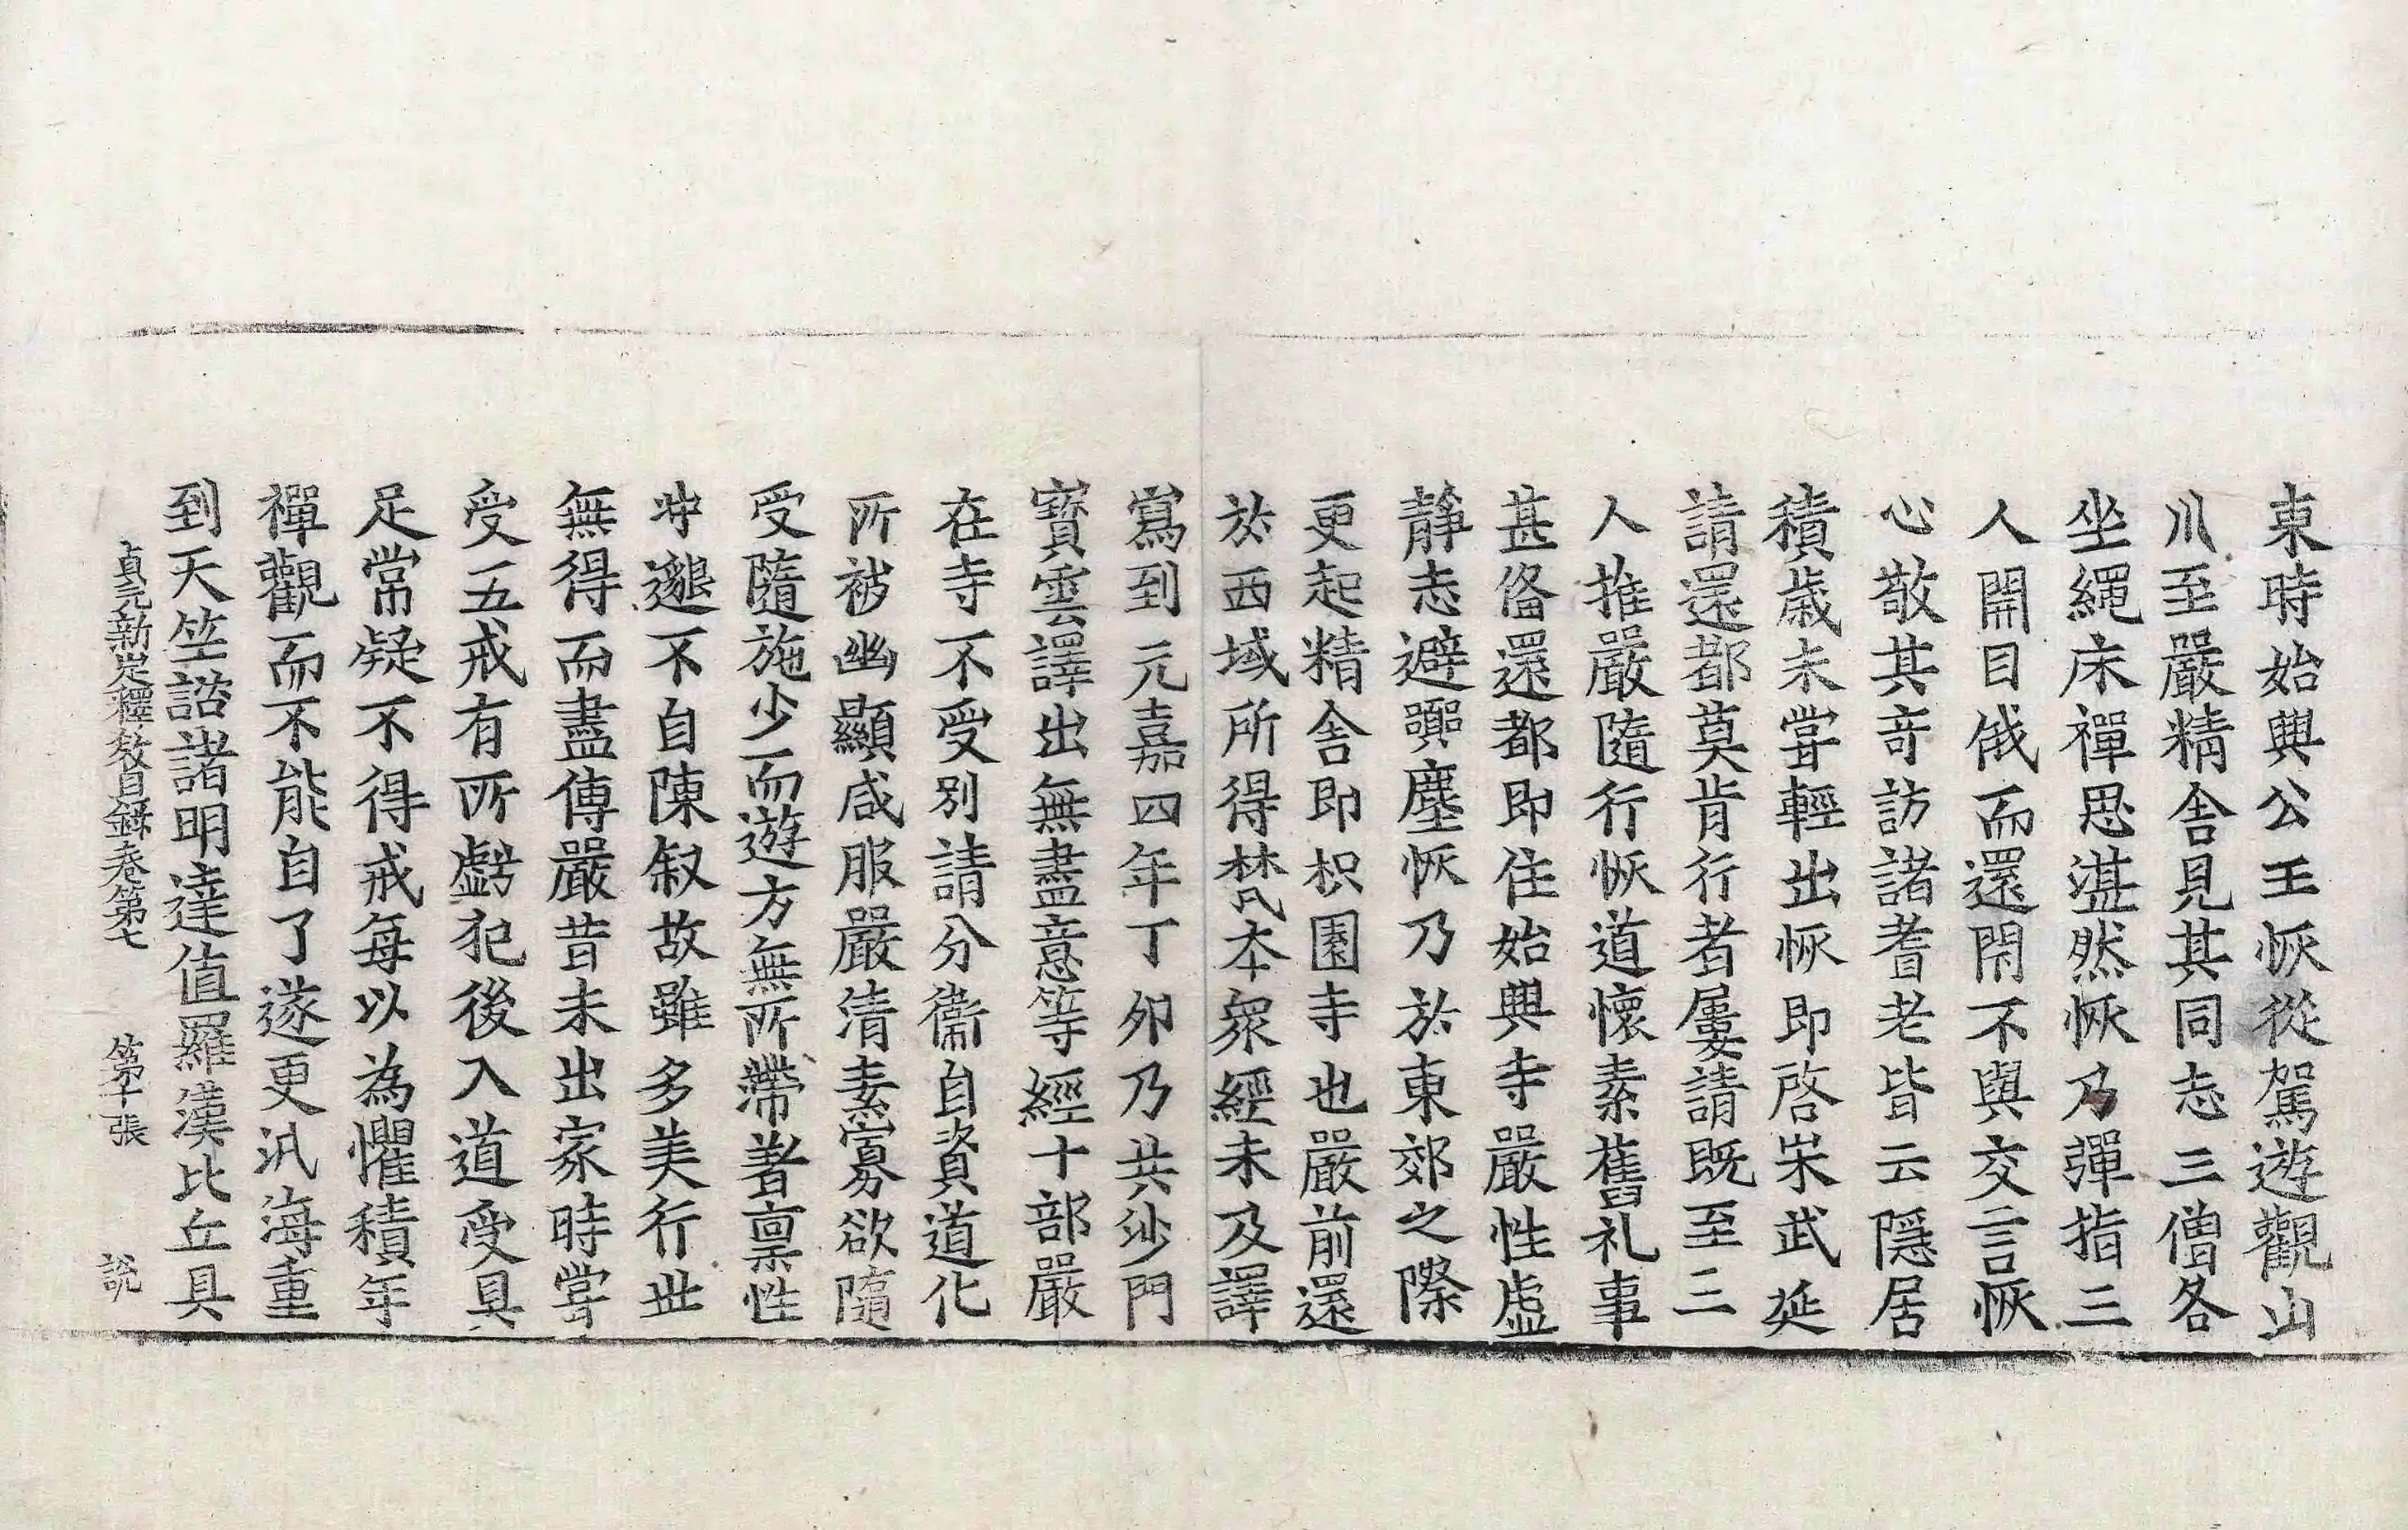 東時始興公王恢從駕遊觀山
川至嚴精舍見其同志三僧各
坐繩床禪思湛然恢乃彈指三
人開目俄而還閇不與交言恢
心敬其奇訪諸耆老皆云隱居
積歲未嘗輕出恢即啓宋武延
請還都莫肯行者屢請既至三
人推嚴隨行恢道懷素舊礼事
甚俻還都即住始興寺嚴性虛
靜志避嚻塵恢乃於東郊之際
更起精舍即枳園寺也嚴前還
於西域所得梵夲衆經未及譯
寫到元嘉四年丁夘乃共沙門
寶雲譯出無盡意等經十部嚴
在寺不受別請分衞自資道化
所被幽顯咸服嚴清素寡欲隨
受隨施少而遊方無所滯著稟性
冲邈不自陳叙故雖多美行世
無得而盡傳嚴昔未出家時嘗
受五戒有所虧犯後入道受具
足常疑不得戒每以為懼積年
禪觀而不能自了遂更汎海重
到天竺諮諸明達值羅漢比丘具
貞元新定釋教目錄卷第七 第十張 說